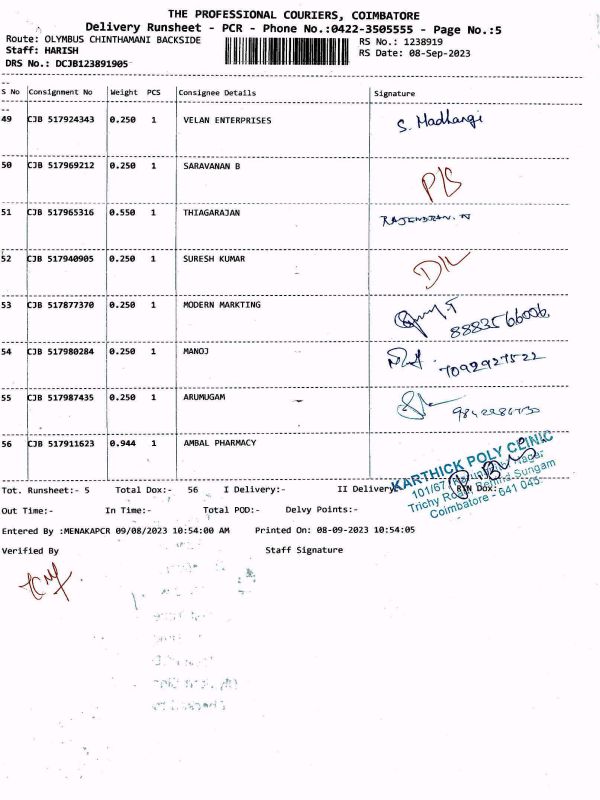 THE PROFESSIONAL COURIERS, COIMBATORE
Delivery Runsheet - PCR - Phone No.:0422-3505555 - Page No.:5
Route: OLYMBUS CHINTHAMANI BACKSIDE
RS No.: 1238919
Staff: HARISH
RS Date: 08-Sep-2023
DRS No.: DCJB123891905
S No Consignment No Weight PCS Consignee Details Signature
49 CJB 517924343 0.250 1 VELAN ENTERPRISES S. Madhangi
50 CJB 517969212 0.250 1 SARAVANAN B P/S
51 CJB 517965316 0.550 1 THIAGARAJAN RAJENDRAN. N
52 CJB 517940905 0.250 1 SURESH KUMAR D/L
53 CJB 517877370 0.250 1 MODERN MARKTING 8883566006
54 CJB 517980284 0.250 1 MANOJ 7092927522
55 CJB 517987435 0.250 1 ARUMUGAM
56 CJB 517911623 0.944 1 AMBAL PHARMACY
KARTHICK POLY CLINIC
101/67 Nagar
Trichy Road, Behind Sungam
Coimbatore - 641 045.
Tot. Runsheet:- 5 Total Dox:- 56 I Delivery:- II Delivery:- RTN Dox:-
Out Time:- In Time:- Total POD:- Delvy Points:-
Entered By :MENAKAPCR 09/08/2023 10:54:00 AM Printed On: 08-09-2023 10:54:05
Verified By Staff Signature